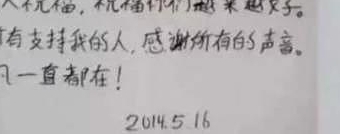 人祝福，祝福你们越来越好。
有支持我的人，感谢所有的声音。
一直都在！
2014.5.16